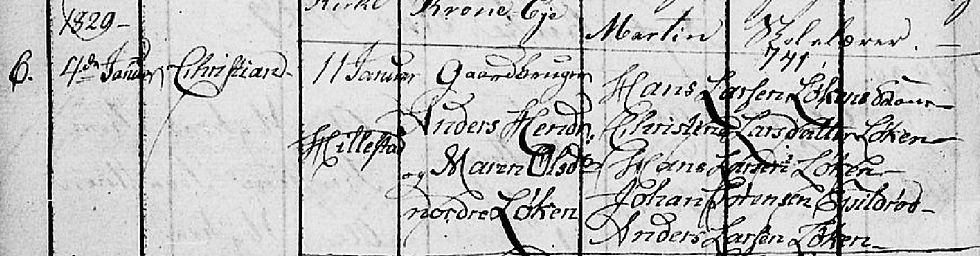 1829
Kirke Krone Eje
Martin Skolelærer.
741.
6. 4de Januar Christian 11 Januar Gaardbruger Hans Larsen Løkens
Hillestad Anders Hendr. Christine Larsdatter Løken
og Maren Olsd Hans Larsen Løken
nordre Løken Johan Sørensen
Anders Larsen Løken